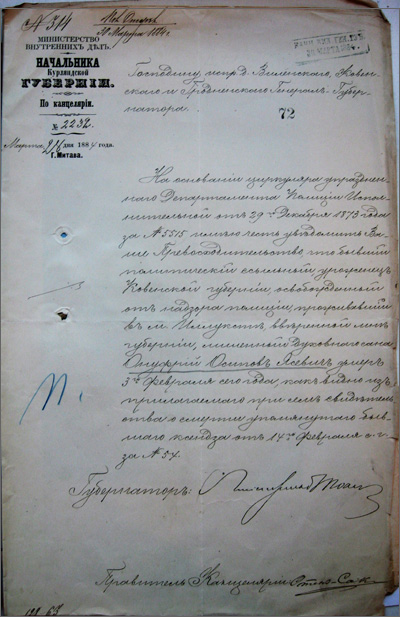 № 314
30 Марта 1884 г.
МИНИСТЕРСТВО
ВНУТРЕННИХЪ ДѢЛЪ.
НАЧАЛЬНИКА
Курляндской
ГУБЕРНІИ.
По канцеляріи.
№ 2232.
Марта 26 дня 1884 года.
Г. Митава.
Господину испр. д. Виленскаго, Ковен-
скаго и Гродненскаго Генералъ-Губер-
натора.
72
На основаніи циркуляра упразднен-
наго Департамента Полиціи Испол-
нительной отъ 29го Декабря 1873 года
за № 5515 имѣю честь увѣдомить Ва-
ше Превосходительство, что бывшій
политическій ссыльный, уроженецъ
Ковенской губерніи, освобожденный
отъ надзора полиціи, проживавшій
въ м. Иллукстъ, ввѣренной мнѣ
губерніи, лишенный духовнаго сана
Онуфрій Осиповъ Ясевичъ умеръ
3го Февраля сего года, какъ видно изъ
прилагаемаго при семъ свидѣтель-
ства о смерти упомянутаго быв-
шаго ксендза отъ 14го Февраля с. г.
за № 54.
Губернаторъ:
Правитель Канцеляріи